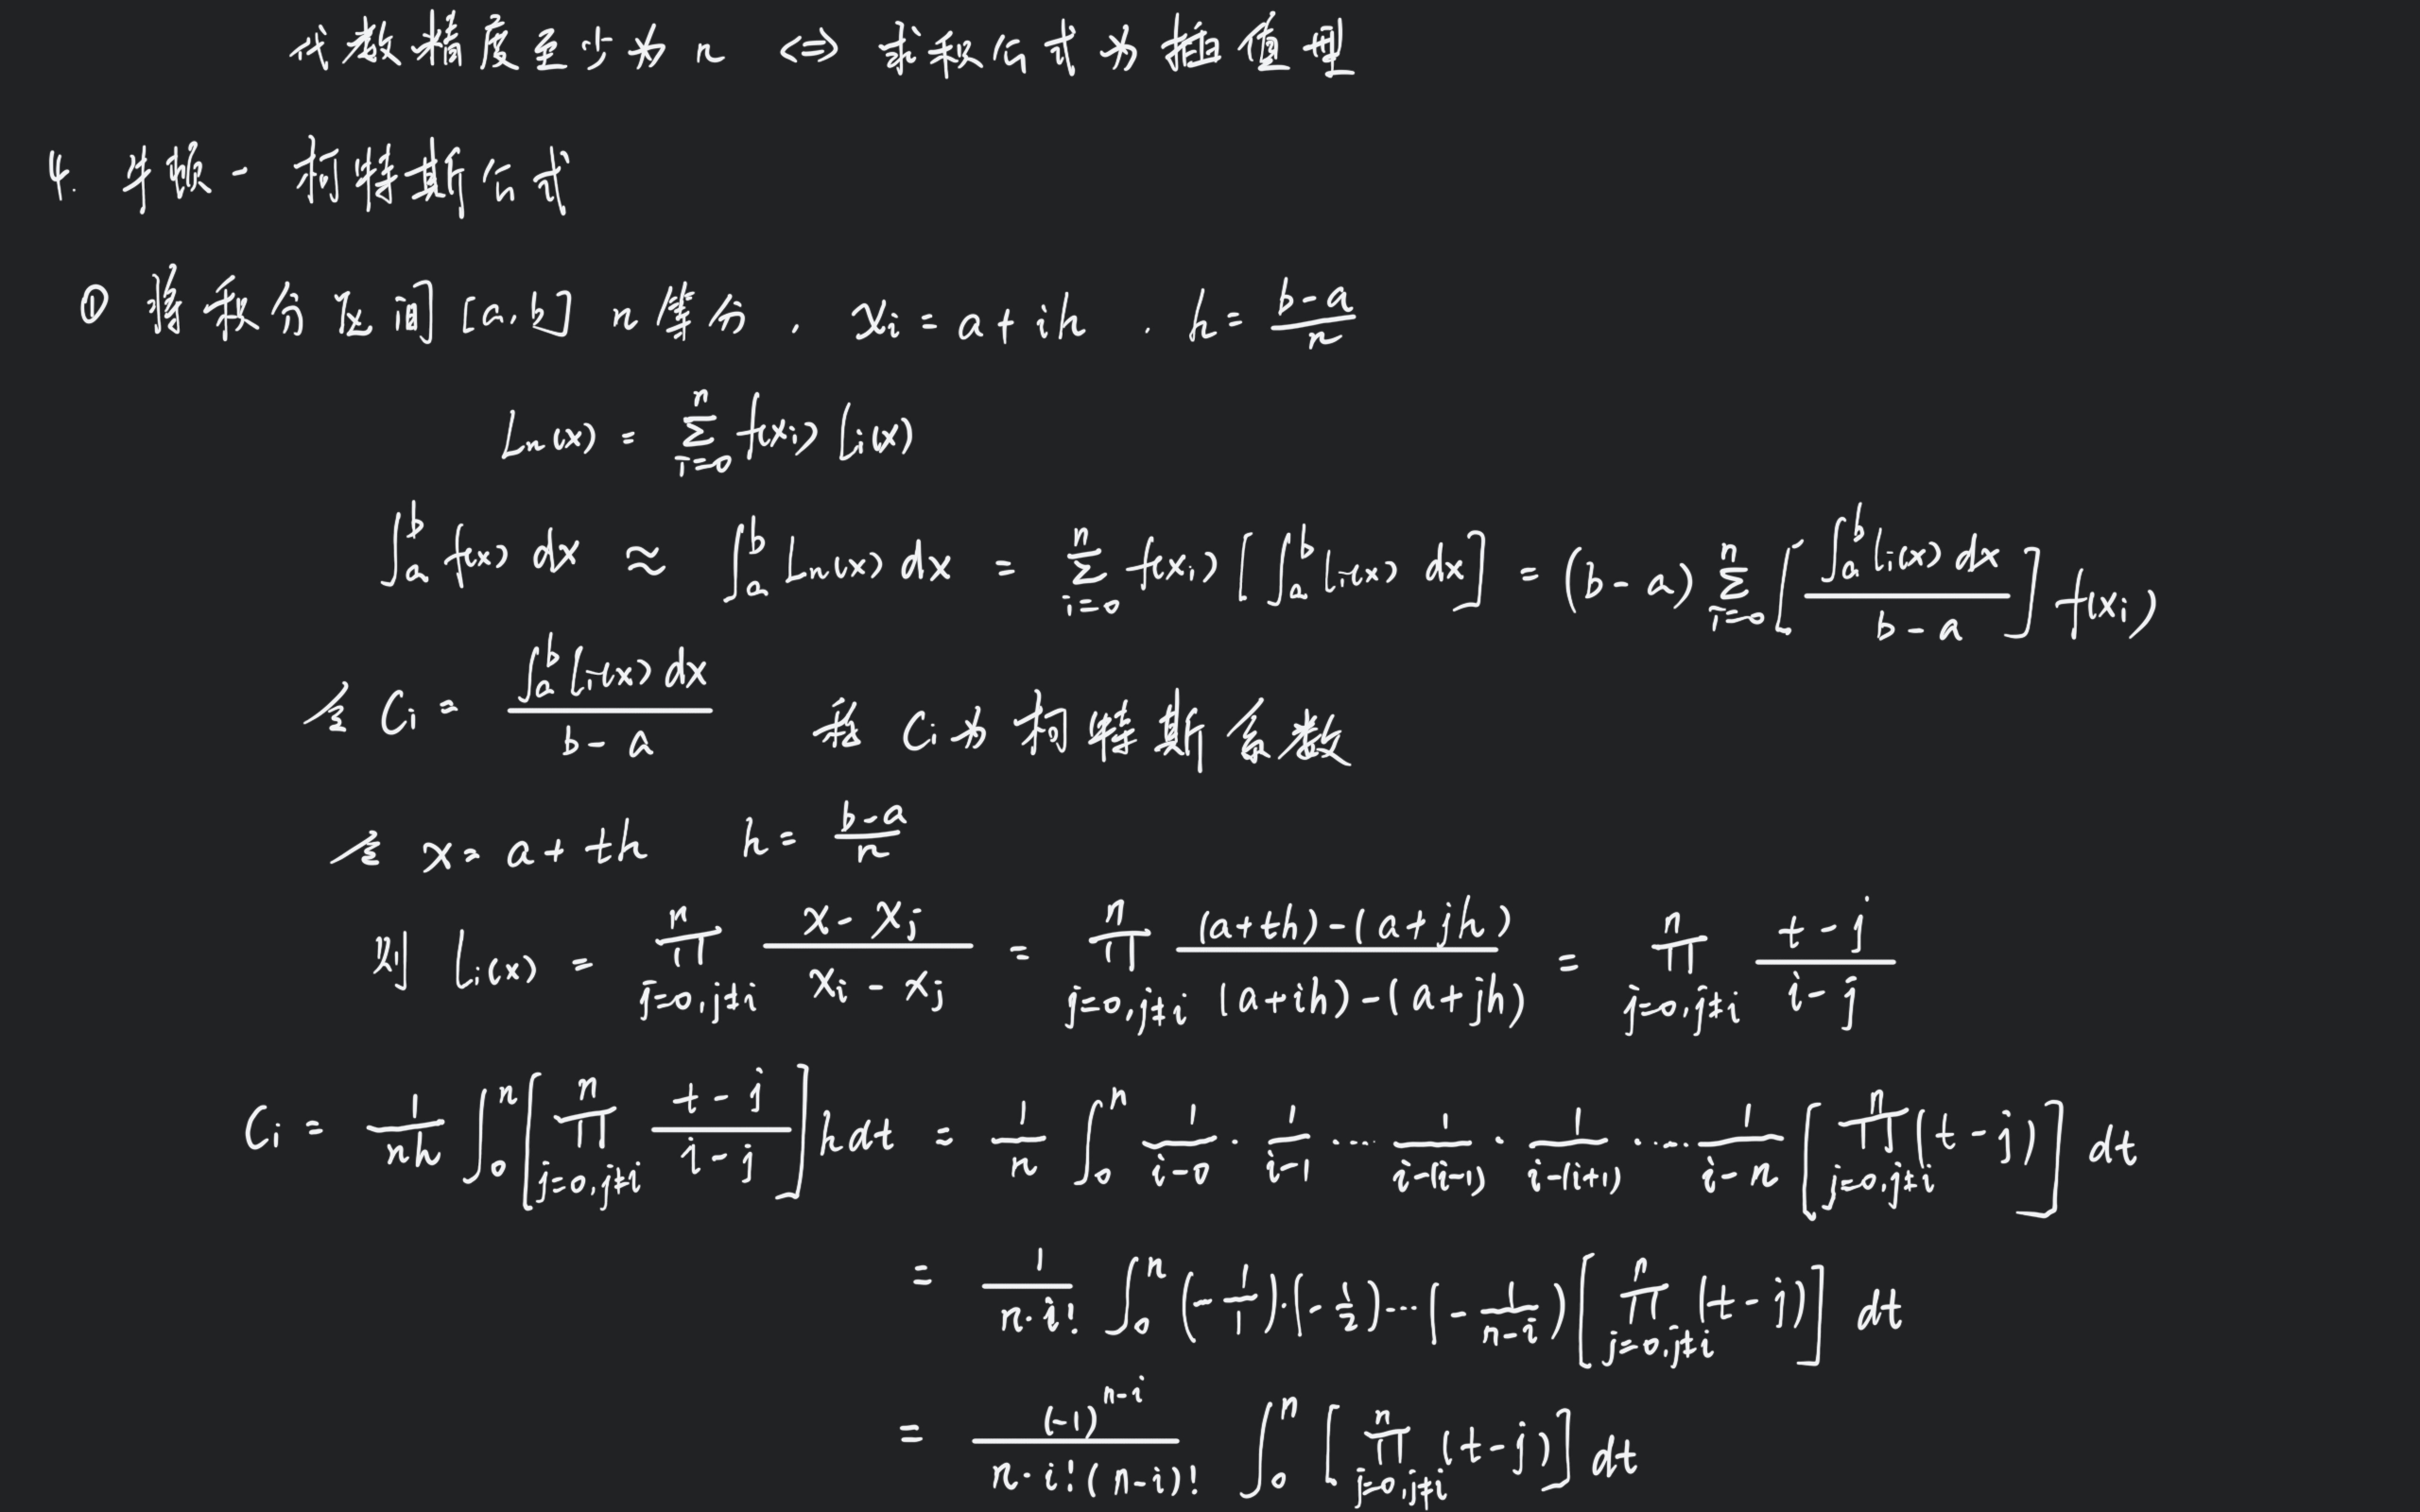 代数精度至少为 n <=> 求积公式为插值型
4. 牛顿 - 柯特斯公式
① 将积分区间 [a, b] n 等分, x_i = a + ih , h = \frac{b-a}{n}
L_n(x) = \sum_{i=0}^{n} f(x_i) l_i(x)
\int_a^b f(x) dx ≈ \int_a^b L_n(x) dx = \sum_{i=0}^{n} f(x_i) [\int_a^b l_i(x) dx] = (b-a) \sum_{i=0}^{n} [\frac{\int_a^b l_i(x) dx}{b-a}] f(x_i)
令 C_i = \frac{\int_a^b l_i(x) dx}{b-a} 称 C_i 为柯特斯系数
令 x = a + th h = \frac{b-a}{n}
则 l_i(x) = \prod_{j=0, j≠i}^{n} \frac{x - x_j}{x_i - x_j} = \prod_{j=0, j≠i}^{n} \frac{(a+th)-(a+jh)}{(a+ih)-(a+jh)} = \prod_{j=0, j≠i}^{n} \frac{t-j}{i-j}
C_i = \frac{1}{nh} \int_0^n [\prod_{j=0, j≠i}^{n} \frac{t-j}{i-j}] h dt = \frac{1}{n} \int_0^n \frac{1}{i-0} · \frac{1}{i-1} ··· \frac{1}{i-(i-1)} · \frac{1}{i-(i+1)} ···· \frac{1}{i-n} [\prod_{j=0, j≠i}^{n} (t-j)] dt
= \frac{1}{n·i!} \int_0^n (-\frac{1}{1})·(-\frac{1}{2})···(-\frac{1}{n-i}) [\prod_{j=0, j≠i}^{n} (t-j)] dt
= \frac{(-1)^{n-i}}{n·i!(n-i)!} \int_0^n [\prod_{j=0, j≠i}^{n} (t-j)] dt